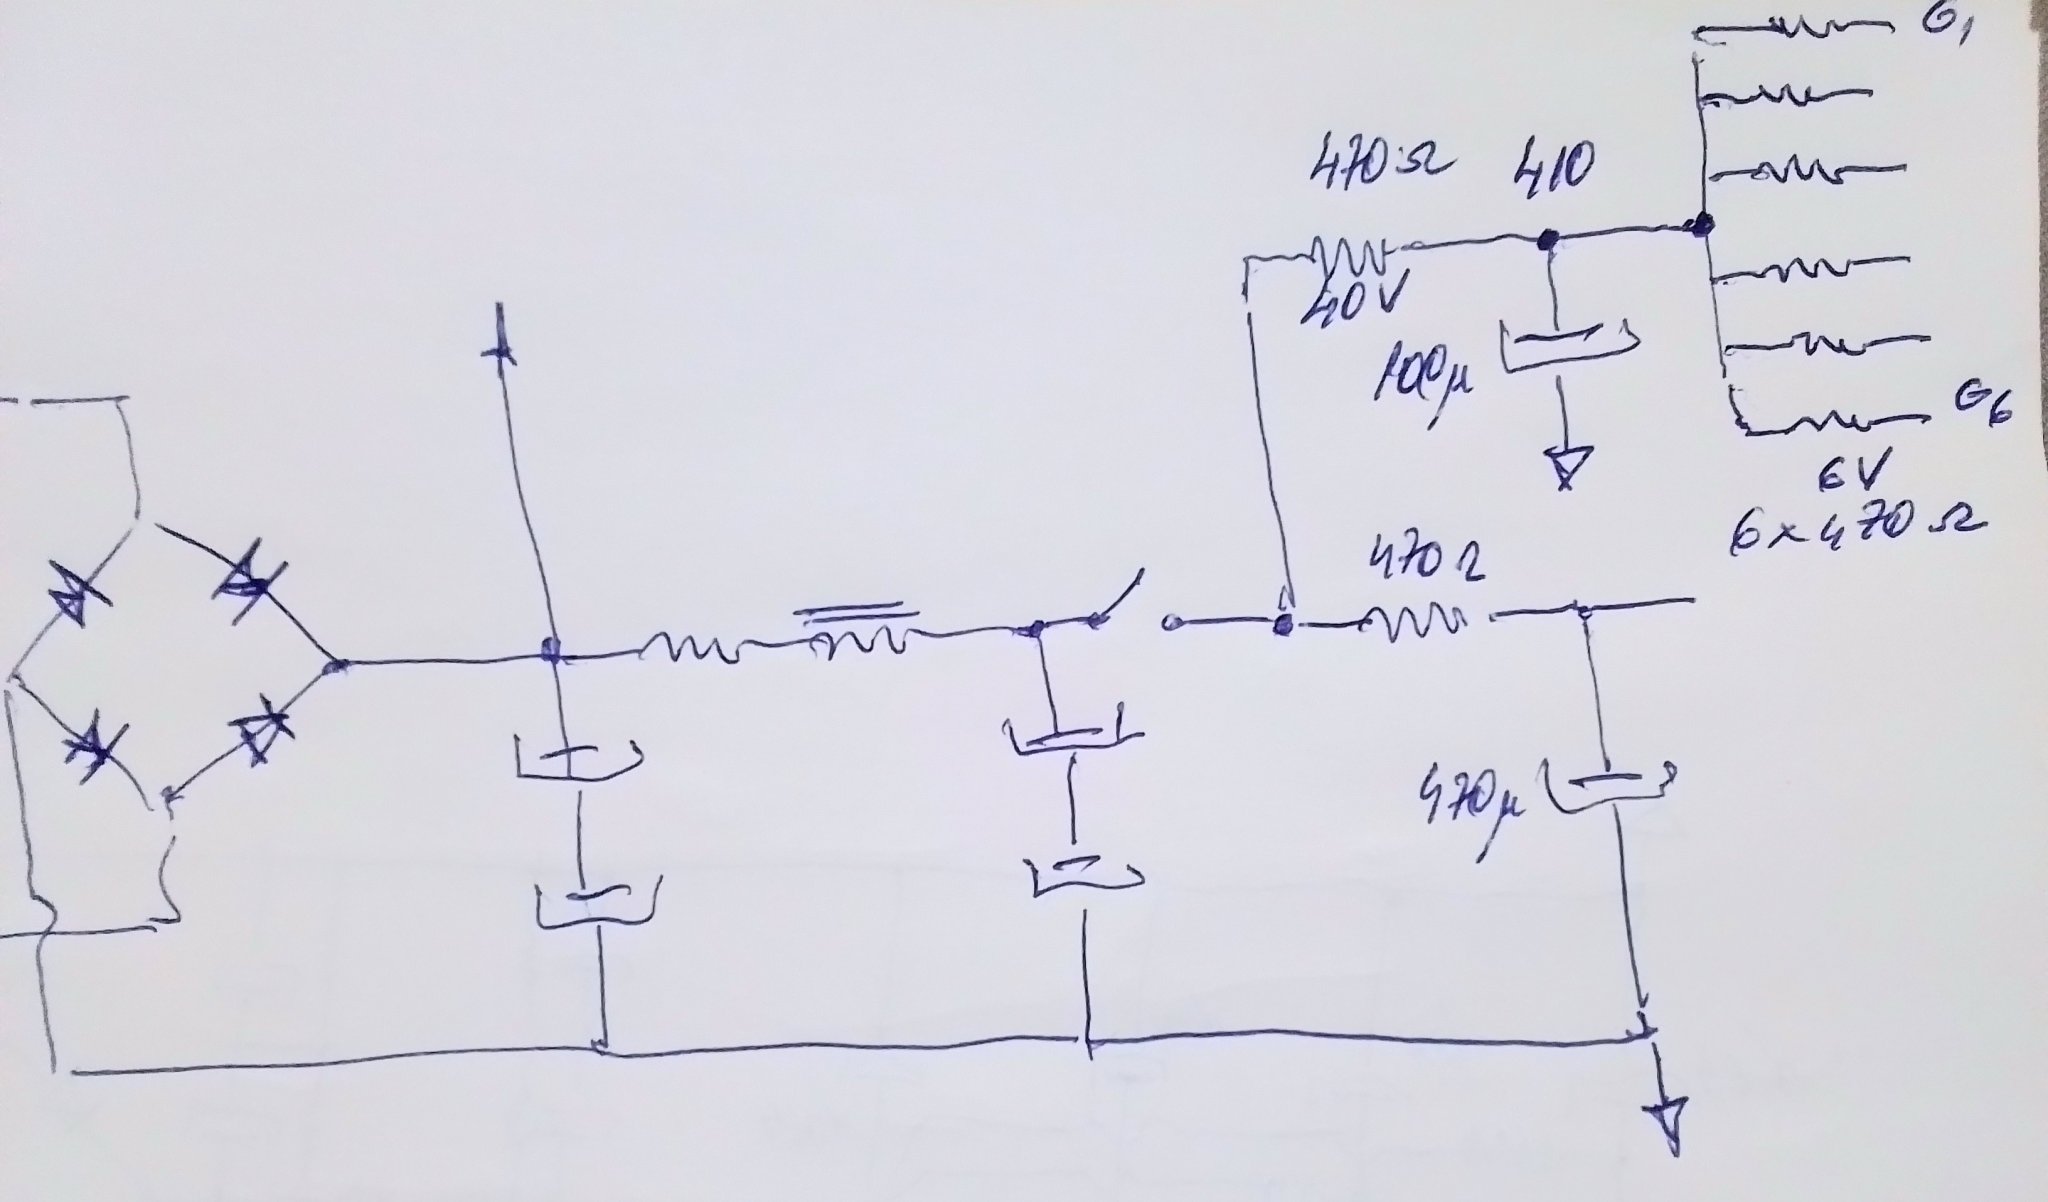 G1
470Ω 410
40V
100μ
G6
6V
6x470Ω
470Ω
470μ